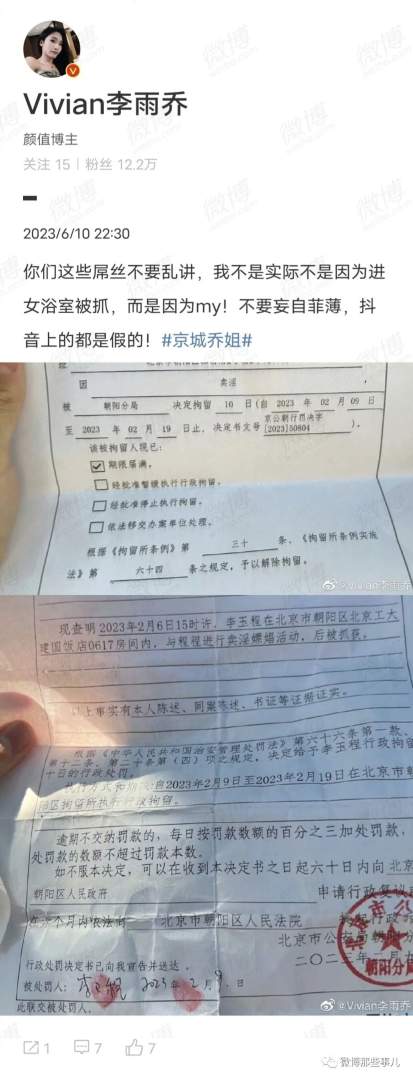 Vivian李雨乔
颜值博主
关注 15 | 粉丝 12.2万
2023/6/10 22:30
你们这些屌丝不要乱讲，我不是实际不是因为进
女浴室被抓，而是因为my！不要妄自菲薄，抖
音上的都是假的！#京城乔姐#
因 卖淫
被 朝阳分局 决定拘留 10 日（自 2023 年 02 月 09 日
至 2023 年 02 月 19 日止，决定书文号 京公朝行罚决字
[2023]50804 ）。
该被拘留人现已：
☑ 期限届满。
□ 经批准暂缓执行行政拘留。
□ 经批准停止执行拘留。
□ 依法移交办案单位处理。
根据《拘留所条例》第 三十 条、《拘留所条例实施
法》第 六十四 条之规定，予以解除拘留。
@Vivian李雨乔
现查明2023年2月6日15时许，李玉程在北京市朝阳区北京工大
建国饭店0617房间内，与程程进行卖淫嫖娼活动，后被抓获。
以上事实有本人陈述、同案陈述、书证等证据证实。
根据《中华人民共和国治安管理处罚法》第六十六条第一款、
第十二条、第二十条第（四）项之规定，决定给予李玉程行政拘留
十日的行政处罚。
执行方式和期限：自2023年2月9日至2023年2月19日在北京市朝
区拘留所执行行政拘留。
逾期不交纳罚款的，每日按罚款数额的百分之三加处罚款，
处罚款的数额不超过罚款本数。
如不服本决定，可以在收到本决定书之日起六十日内向 北京
朝阳区人民政府 申请行政复议
在 个月内依法向 北京市朝阳区人民法院
北京市公安局朝阳分
二〇二
朝阳分局
行政处罚决定书已向我宣告并送达。
被处罚人： 2023 年 2 月 9 日
此联交被处罚人。
@Vivian李雨乔
1 7 7
微博那些事儿